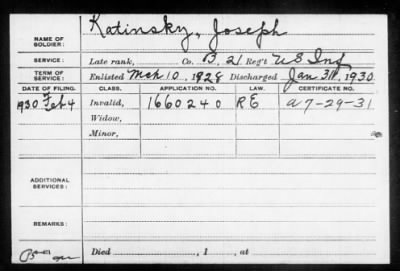 NAME OF SOLDIER: Katinsky, Joseph
SERVICE: Late rank, Co. B, 21 Reg't U S Inf
TERM OF SERVICE: Enlisted Mch 10, 1928 Discharged Jan 31, 1930
DATE OF FILING. CLASS. APPLICATION NO. LAW. CERTIFICATE NO.
1930 Feb 4 Invalid, 1660240 RE a 7-29-31
Widow,
Minor,
ADDITIONAL SERVICES:
REMARKS:
Died , 1 , at